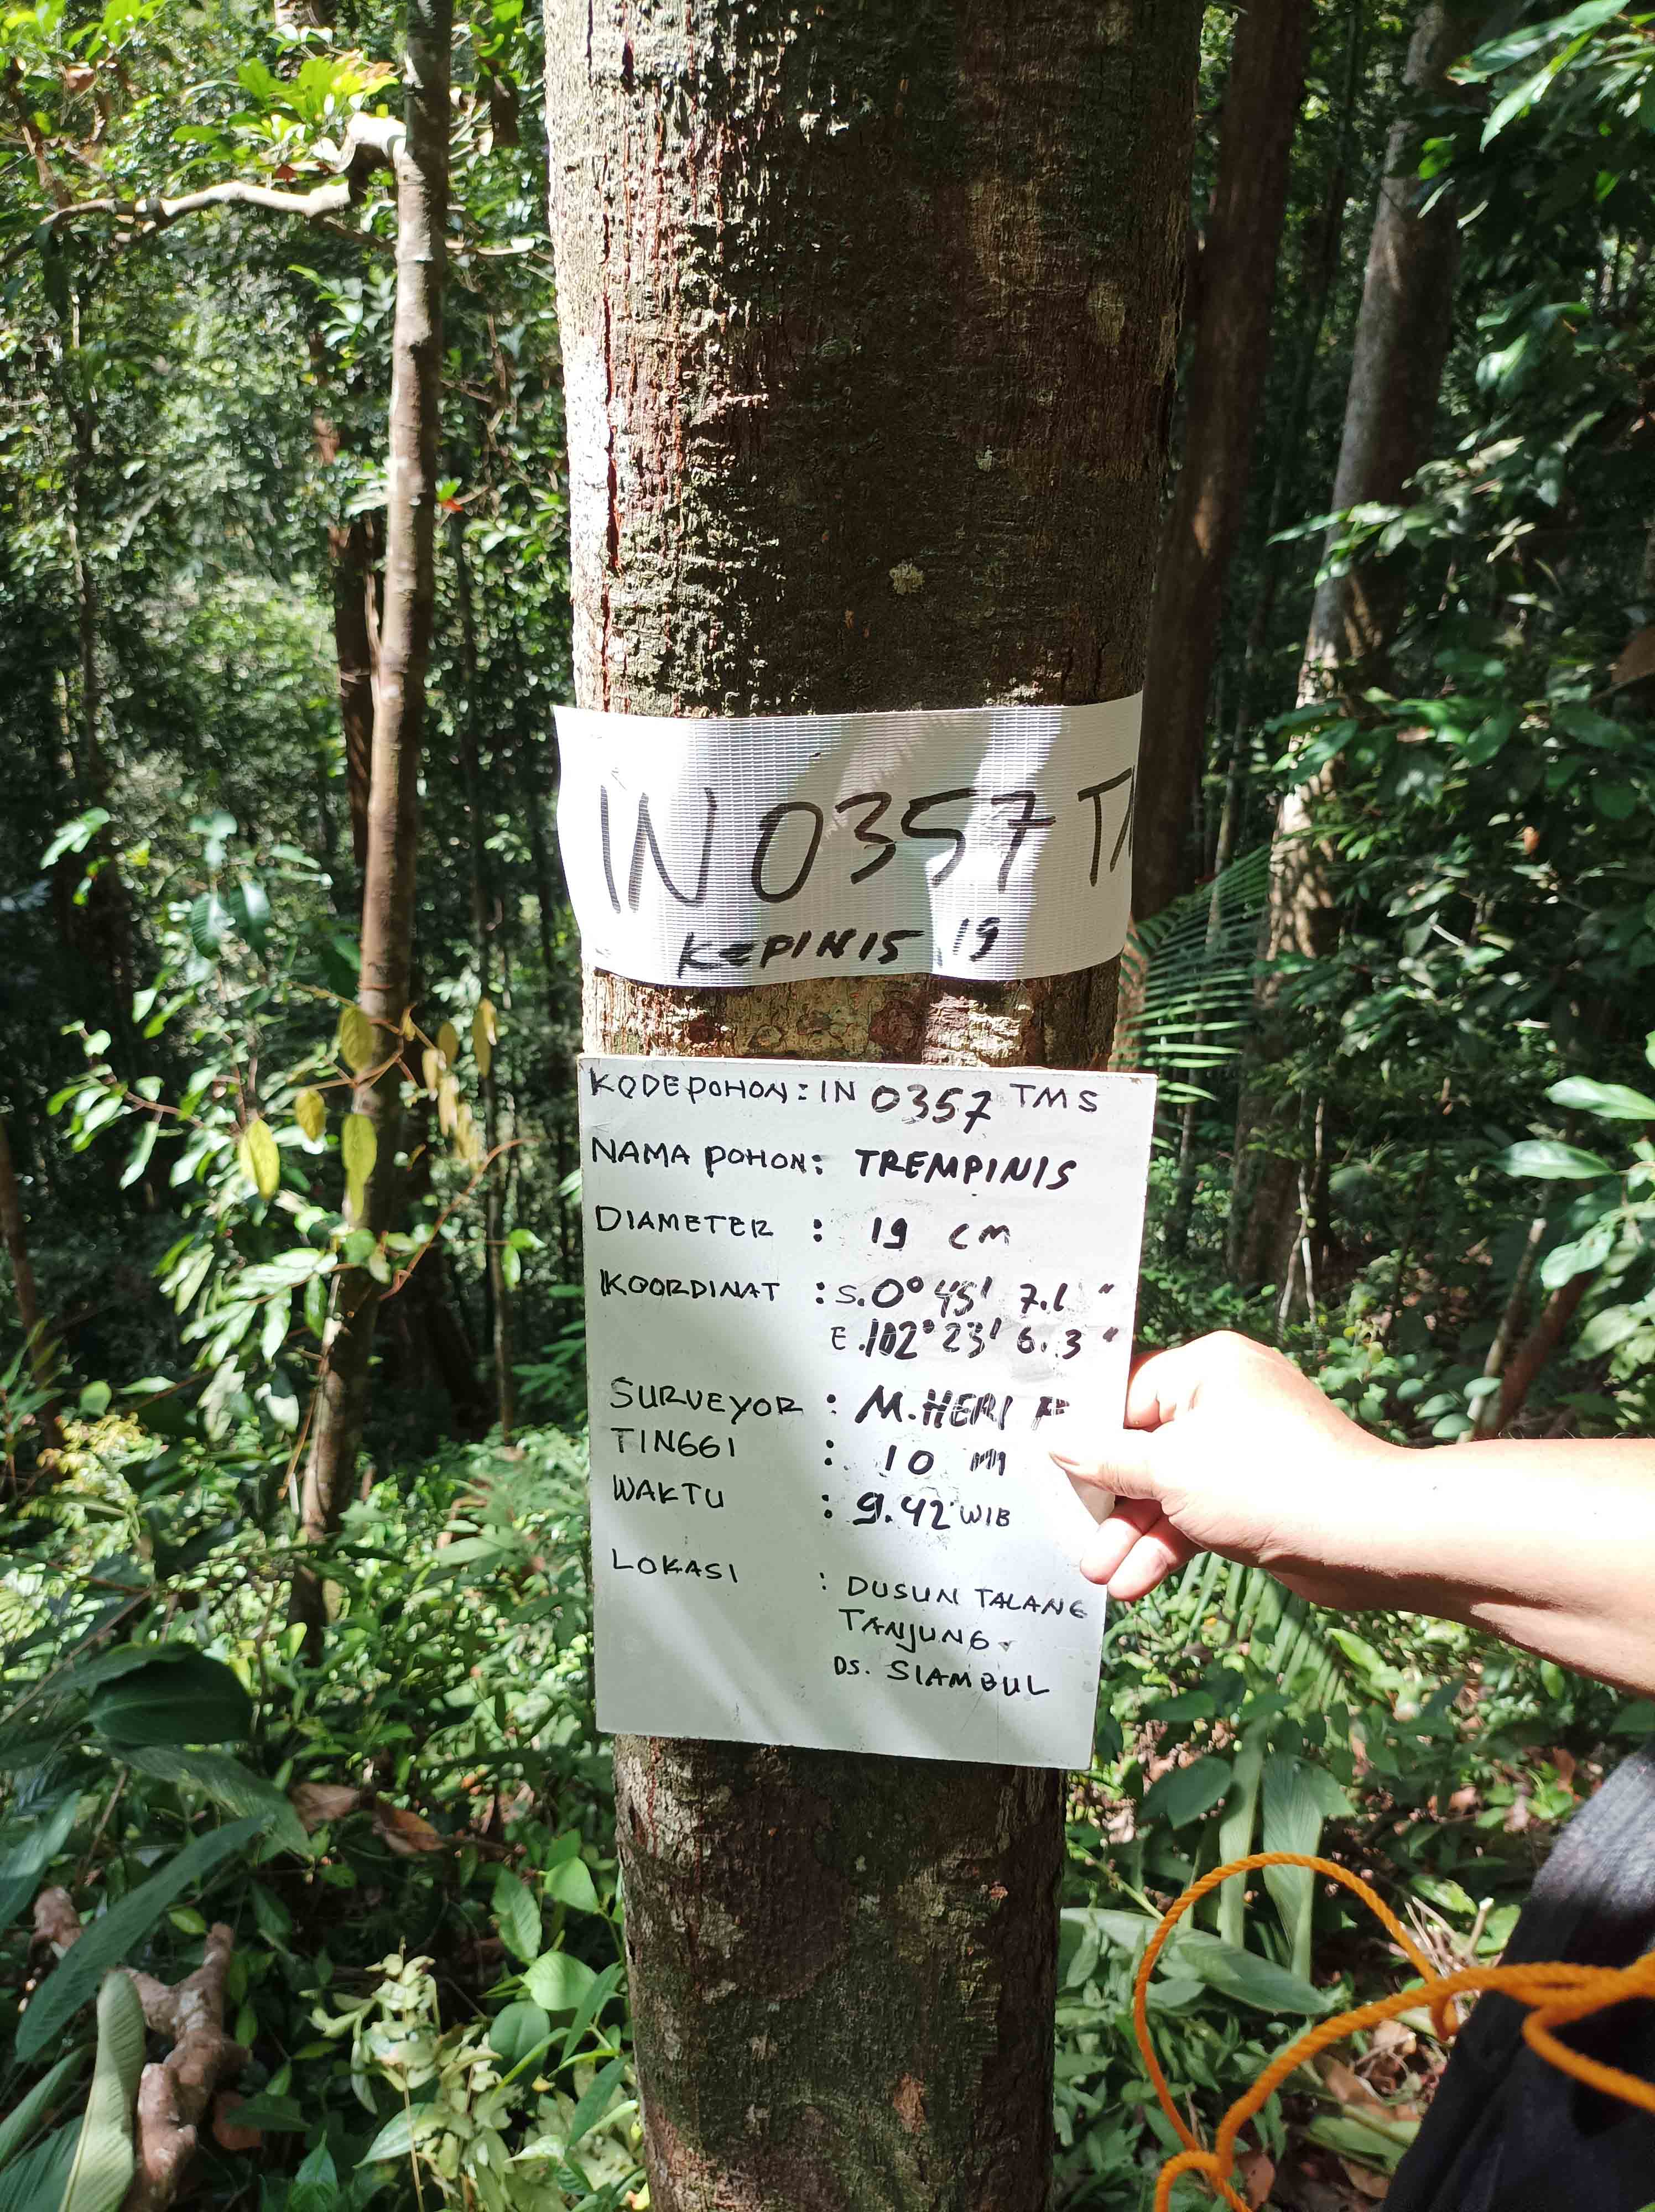 IN 0357 TM
KEPINIS 19
KODE POHON : IN 0357 TMS
NAMA POHON : TREMPINIS
DIAMETER : 19 CM
KOORDINAT : S. 0° 45' 7.1 "
E. 102° 23' 6.3 "
SURVEYOR : M. HERI F
TINGGI : 10 M
WAKTU : 9.42 WIB
LOKASI : DUSUN TALANG
TANJUNG
DS. SIAMBUL